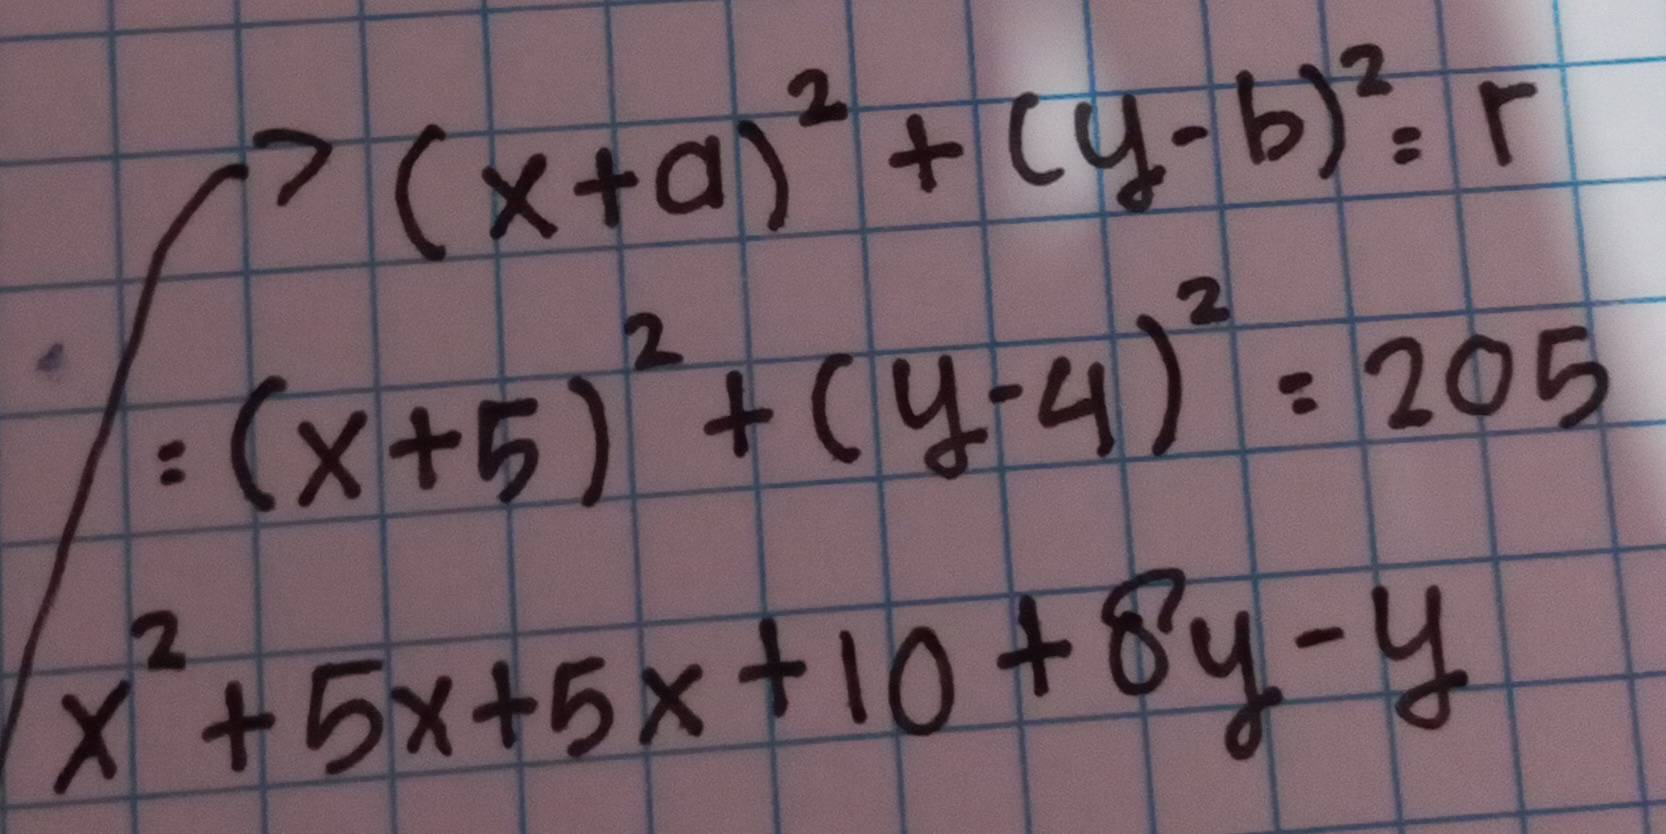 (x+a)² + (y-b)² = r
= (x+5)² + (y-4)² = 205
x² + 5x + 5x + 10 + 8y - y